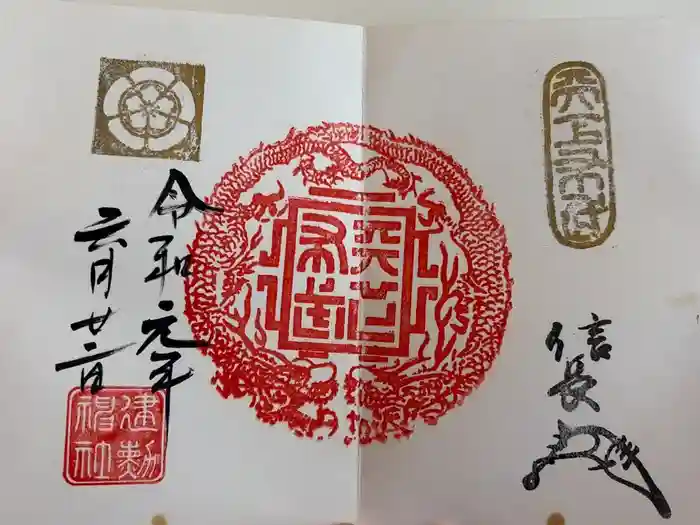 天下布武
信長
天下布武
令和元年
六月廿二日
建勲神社